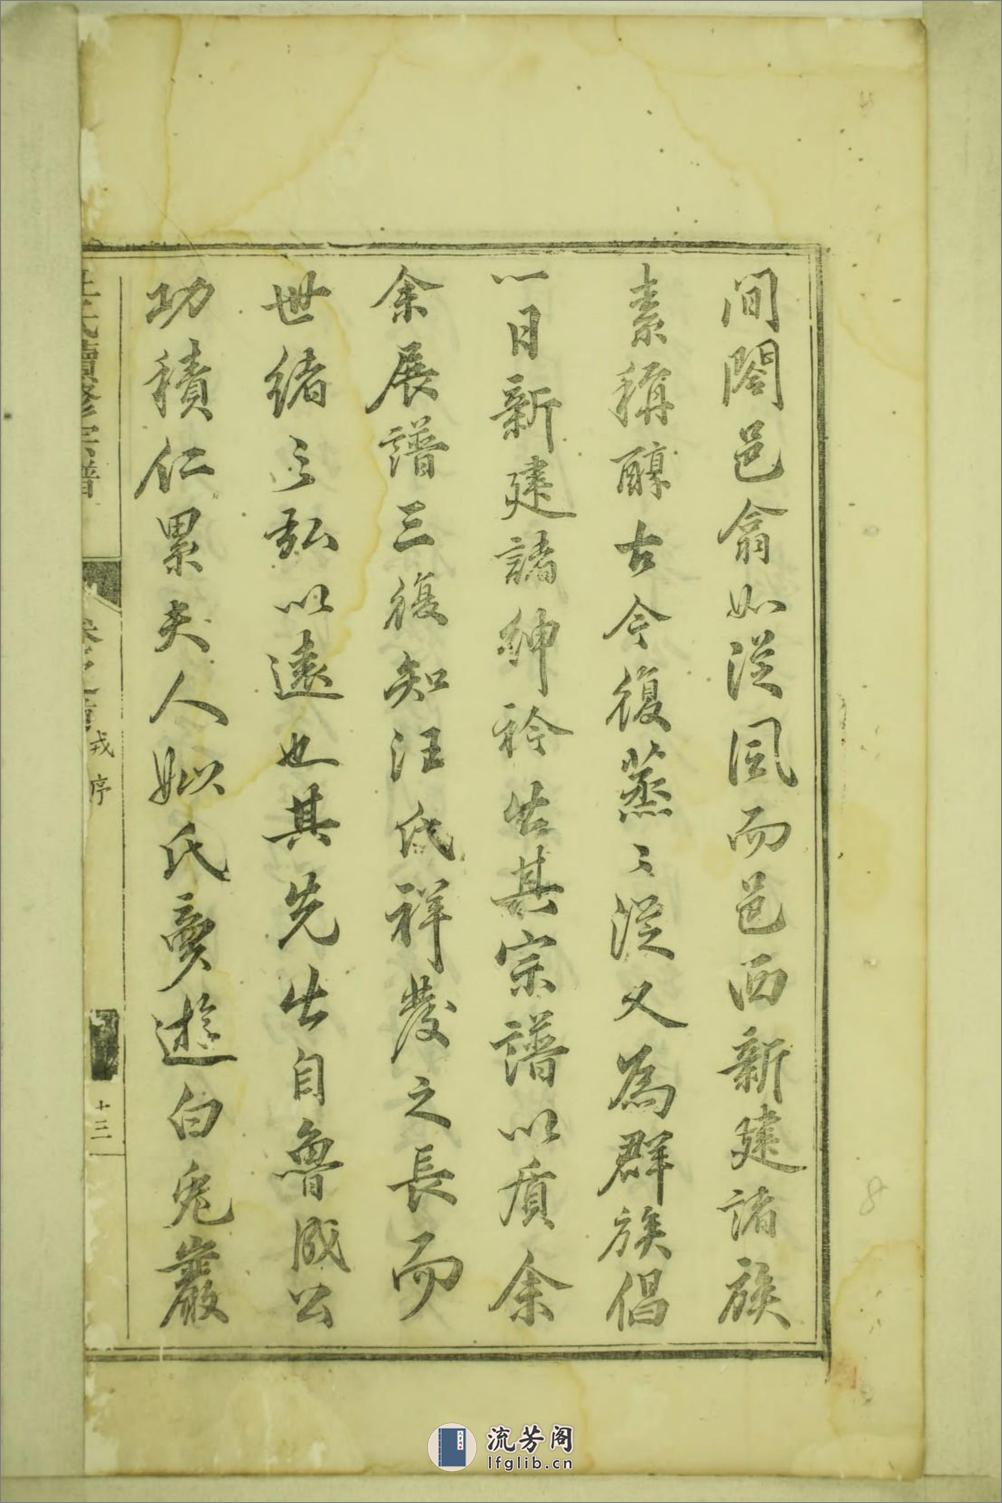 間閤邑翕如從風而邑西新建諸族
素稱醇古今復蒸〻從又為群族倡
一日新建諸紳衿出其宗譜以質余
余展譜三復知汪氏祥發之長而
世緒之弘以遠也其先出自魯成公
功積仁累夫人姒氏夢遊白兔巖
氏續修宗譜
卷之
戎序
十三
8
流芳阁
lfglib.cn